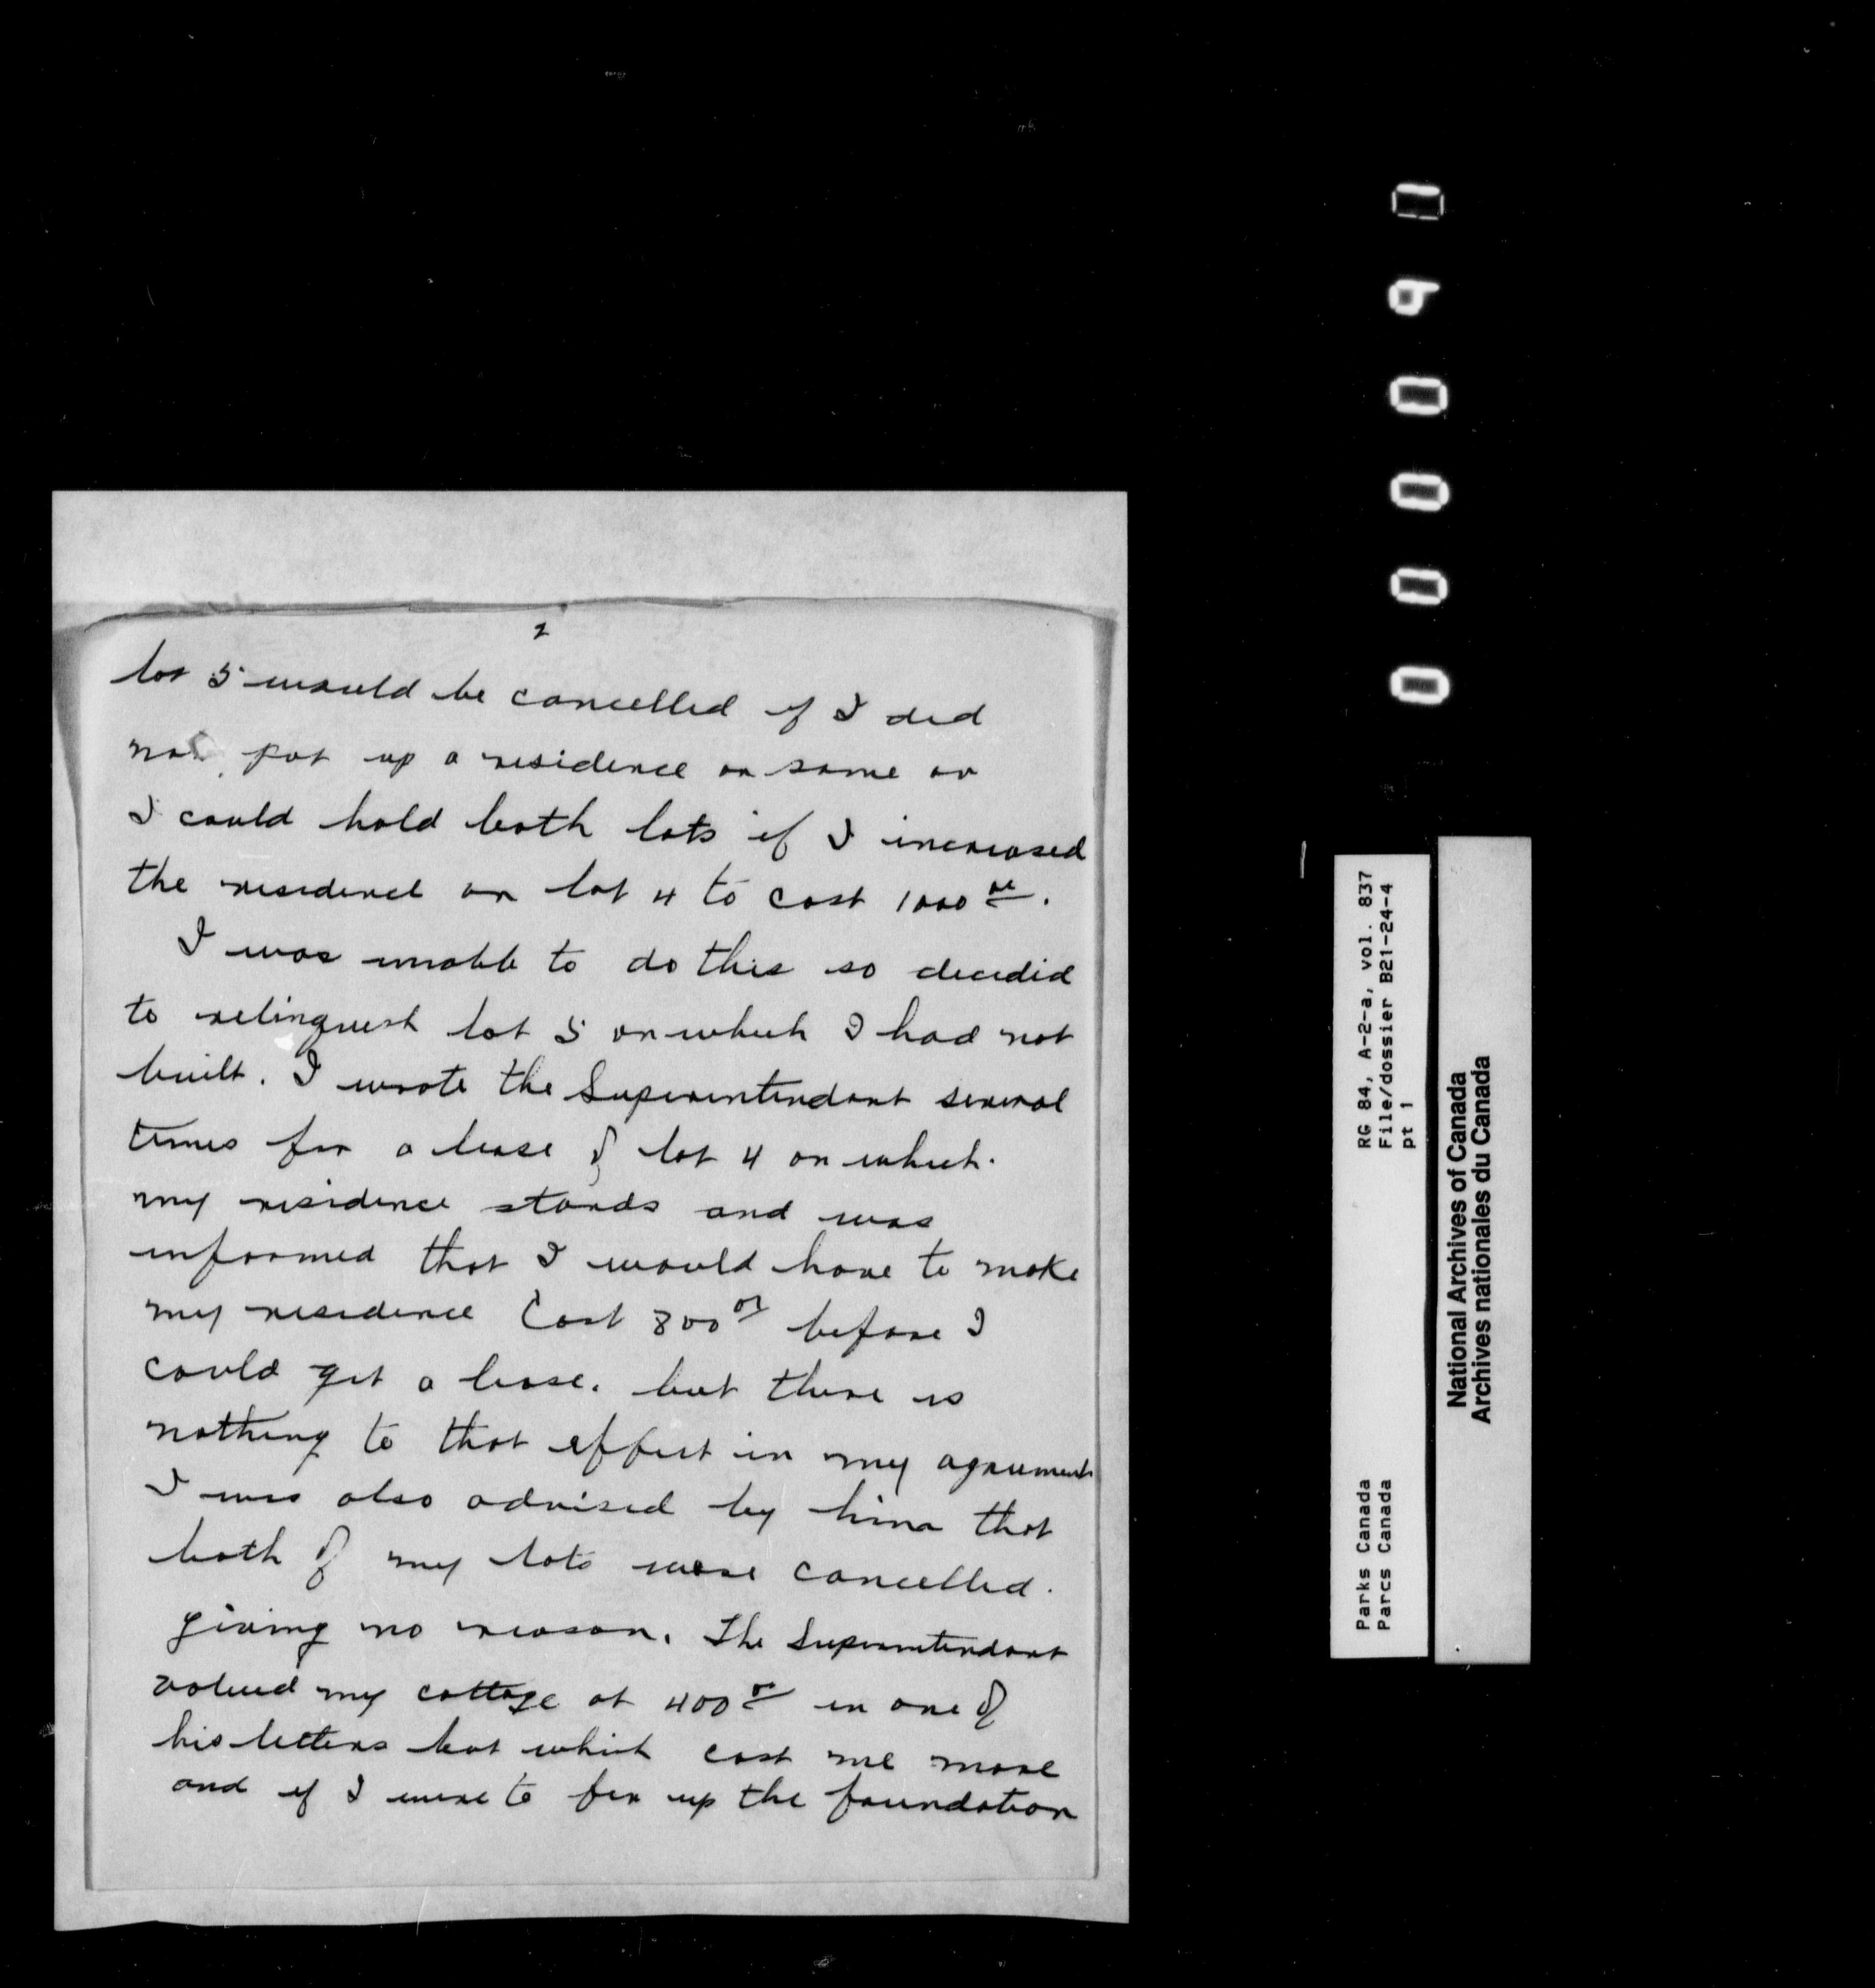 2
lot 5 would be cancelled if I did
not put up a residence on same or
I could hold both lots if I increased
the residence on lot 4 to cost 1000 00/.
I was unable to do this so decided
to relinquesh lot 5 on which I had not
built. I wrote the Superintendant several
times for a lease of lot 4 on which
my residence stands and was
informed that I would have to make
my residence Cost 800 00 before I
could get a lease. but there is
nothing to that effect in my agreement
I was also advised by him that
both of my lots were cancelled.
giving no reason. The Superintendant
valued my cottage at 400 00 in one of
his letters but which cost me more
and if I were to fix up the foundation
000090
RG 84, A-2-a, vol. 837
File/dossier B21-24-4
pt 1
Parks Canada
Parcs Canada
National Archives of Canada
Archives nationales du Canada